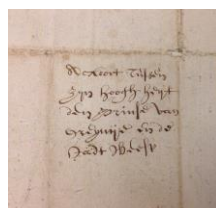 Accoort Tussen
Zyn hoogh heyt
den Prinse van
Orengnie en de
Stadt Weesp